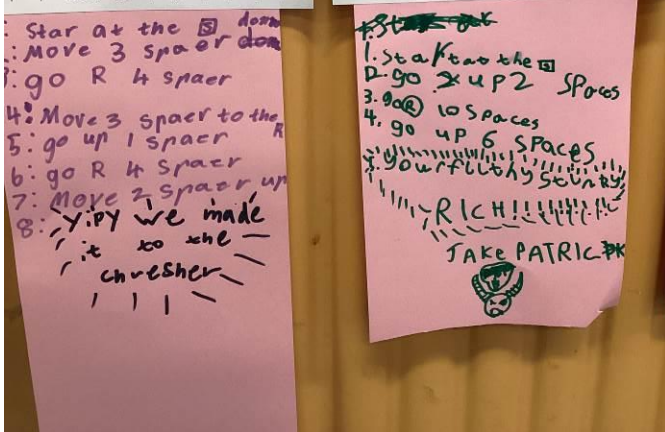 : Star at the S down
: Move 3 spaer
: go R 4 spaer
4: Move 3 spaer to the R
5: go up 1 spaer
6: go R 4 spaer
7: Move 2 spaer up
8: Yipy we made
it to the
chresher
1. Start at the S
2. go up 2 SPaces
3. go R 10 SPaces
4. go uP 6 SPaces
5. your filthy Stinky
RICH!!!!!!!!
JAKe PATRICK